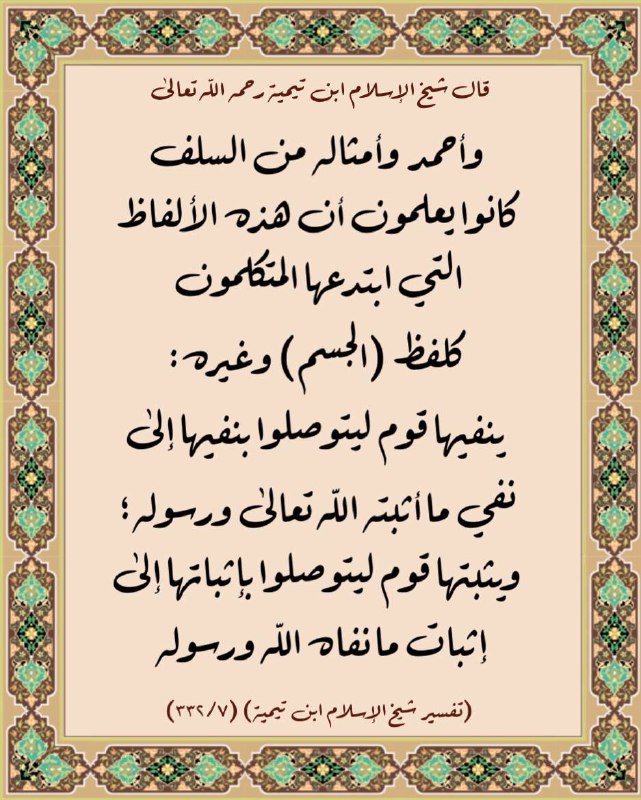 قال شيخ الإسلام ابن تيمية رحمه الله تعالى
وأحمد وأمثاله من السلف
كانوا يعلمون أن هذه الألفاظ
التي ابتدعها المتكلمون
كلفظ (الجسم) وغيره:
ينفيها قوم ليتوصلوا بنفيها إلى
نفي ما أثبته الله تعالى ورسوله؛
ويثبتها قوم ليتوصلوا بإثباتها إلى
إثبات ما نفاه الله ورسوله
(تفسير شيخ الإسلام ابن تيمية) (٣٣٢/٧)